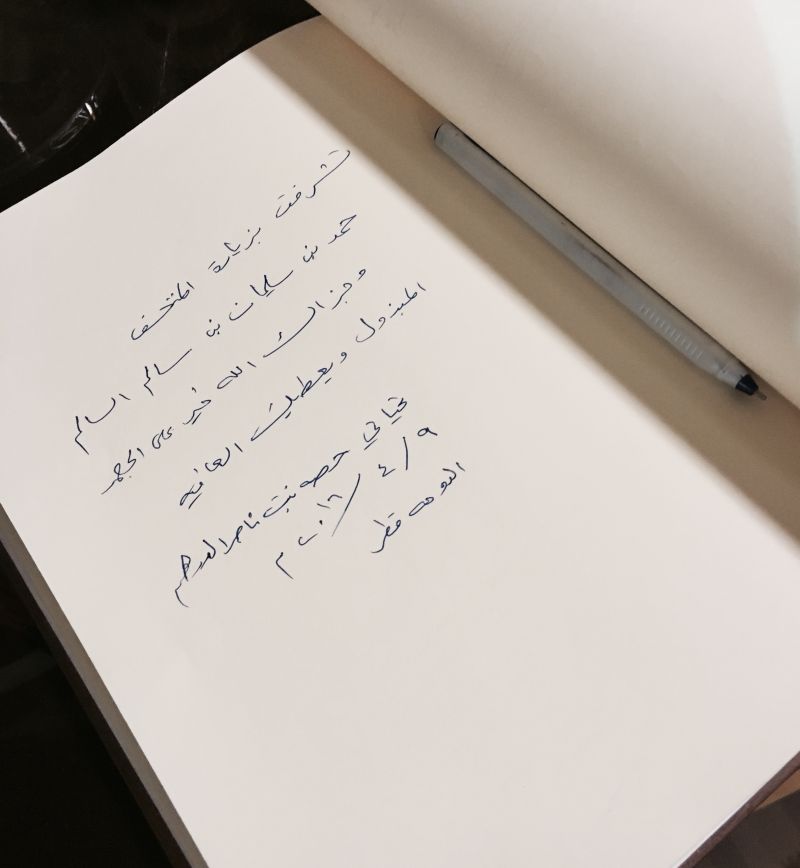 تشرفت بزيارة المتحف
حمد بن سليمان بن سالم السالم
وجزاك الله خير على الجهد
المبذول ويعطيك العافيه
تحياتي حصه بنت ناصر الدرهم
٩/٤/٢٠١٦م
الدوحه قطر